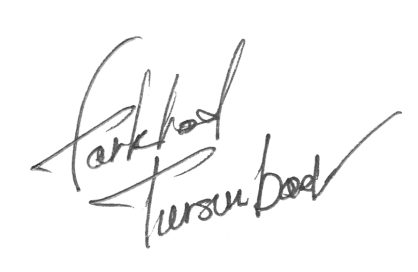 Farkhod
Tursunboev